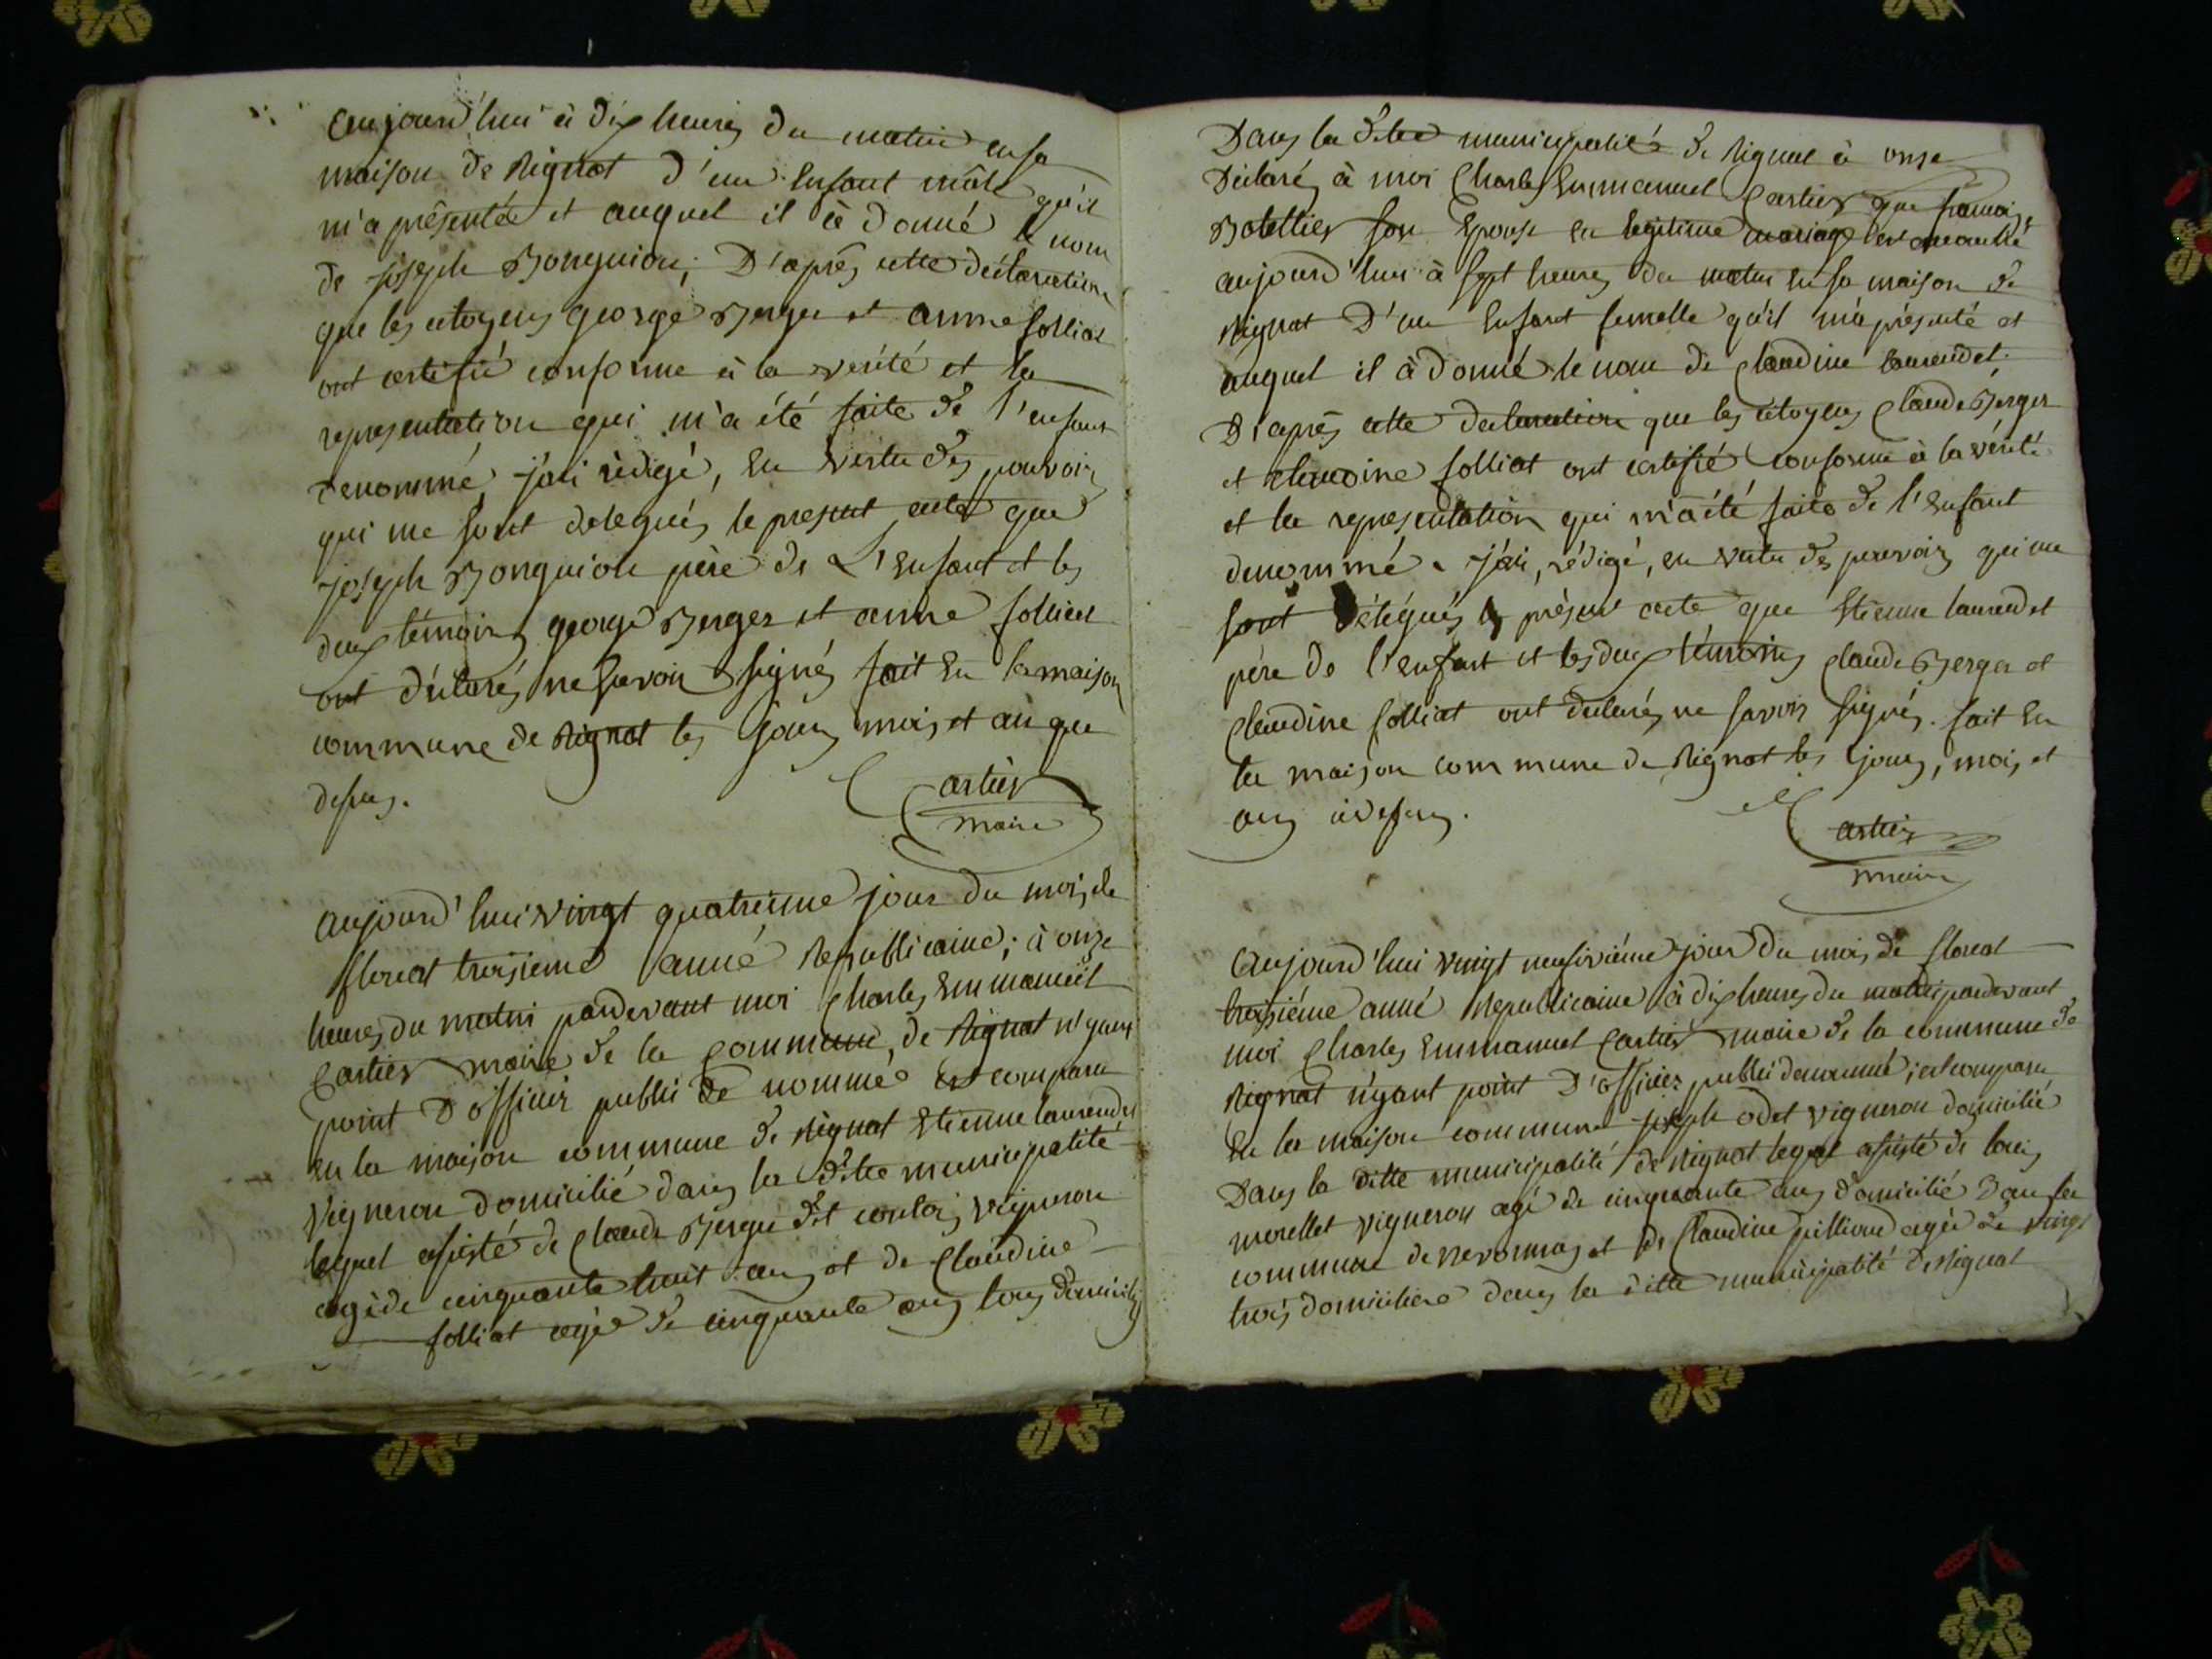 aujourd'hui à dix heures du matin en sa
maison de Rignat d'un Enfant mâle qu'il
m'a présentée et auquel il à donné le nom
de joseph Bonguion; D'après cette déclaration
que les citoyens george Berger et anne folliat
ont certifié conforme à la vérité et la
representation qui m'a été faite de l'enfant
denommé, j'ai rèdigé, En vertu des pouvoirs
qui me sont delegués le present acte que
joseph Bonguion père de L'Enfant et les
deux témoins george Berger et anne folliat
ont déclarés ne savoir signés fait En la maison
commune de Rignat les jours mois et an que
dessus.
Cartier
maire
aujourd'hui vingt quatrieme jour du mois de
floreal troisieme année Republicaine; à onze
heures du matin pardevant moi Charles Emmanuël
Cartier maire de la Commune, de Rignat n'yant
point D'officier public de nommé est comparu
En la maison commune de Rignat Etienne laurendet
Vigneron domicilié dans la ditte municipalité
lequel assisté de Claude Berger dit vigneron
agé de cinquante huit ans et de Claudine
folliat agée de cinquante ans tous domiciliés
Dans la ditte municipalité de Rignat à onze
Déclarés à moi Charles Emmanuel Cartier que francoise
son Epouse en legitime mariage est accouchée
aujourd'hui à sept heures du matin En sa maison de
Rignat D'un Enfant femelle qu'il m'à présenté et
auquel il à donné le nom de Claudine laurendet.
D'après cette declaration que les citoyens Claude Berger
et Claudine folliat ont certifié conforme à la vérité
et la representation qui m'a été faite de l'Enfant
denommé. j'ai, rédigé, en vertu des pouvoirs qui me
sont délégués le présent acte que Etienne laurendet
père de l'enfant et les deux témoins Claude Berger et
Claudine folliat ont declarés ne savoir signés. fait En
la maison commune de Rignat les jours, mois, et
ans cidessus.
Cartier
maire
aujourd'hui vingt neufivième jour Du mois de floreal
troisiéme année Republicaine à dix heures du matin pardevant
moi Charles Emmanuel Cartier maire de la commune de
Rignat n'yant point D'officier public denommé; est comparu
En la maison commune joseph odet vigneron domicilié
Dans la ditte municipalité de Rignat lequel assisté de louis
morellet vigneron agé de cinquante ans domicilié dans la
commune de Revonnas et de Claudine agée de vingt
trois domiciliée dans la ditte municipalité de Rignat